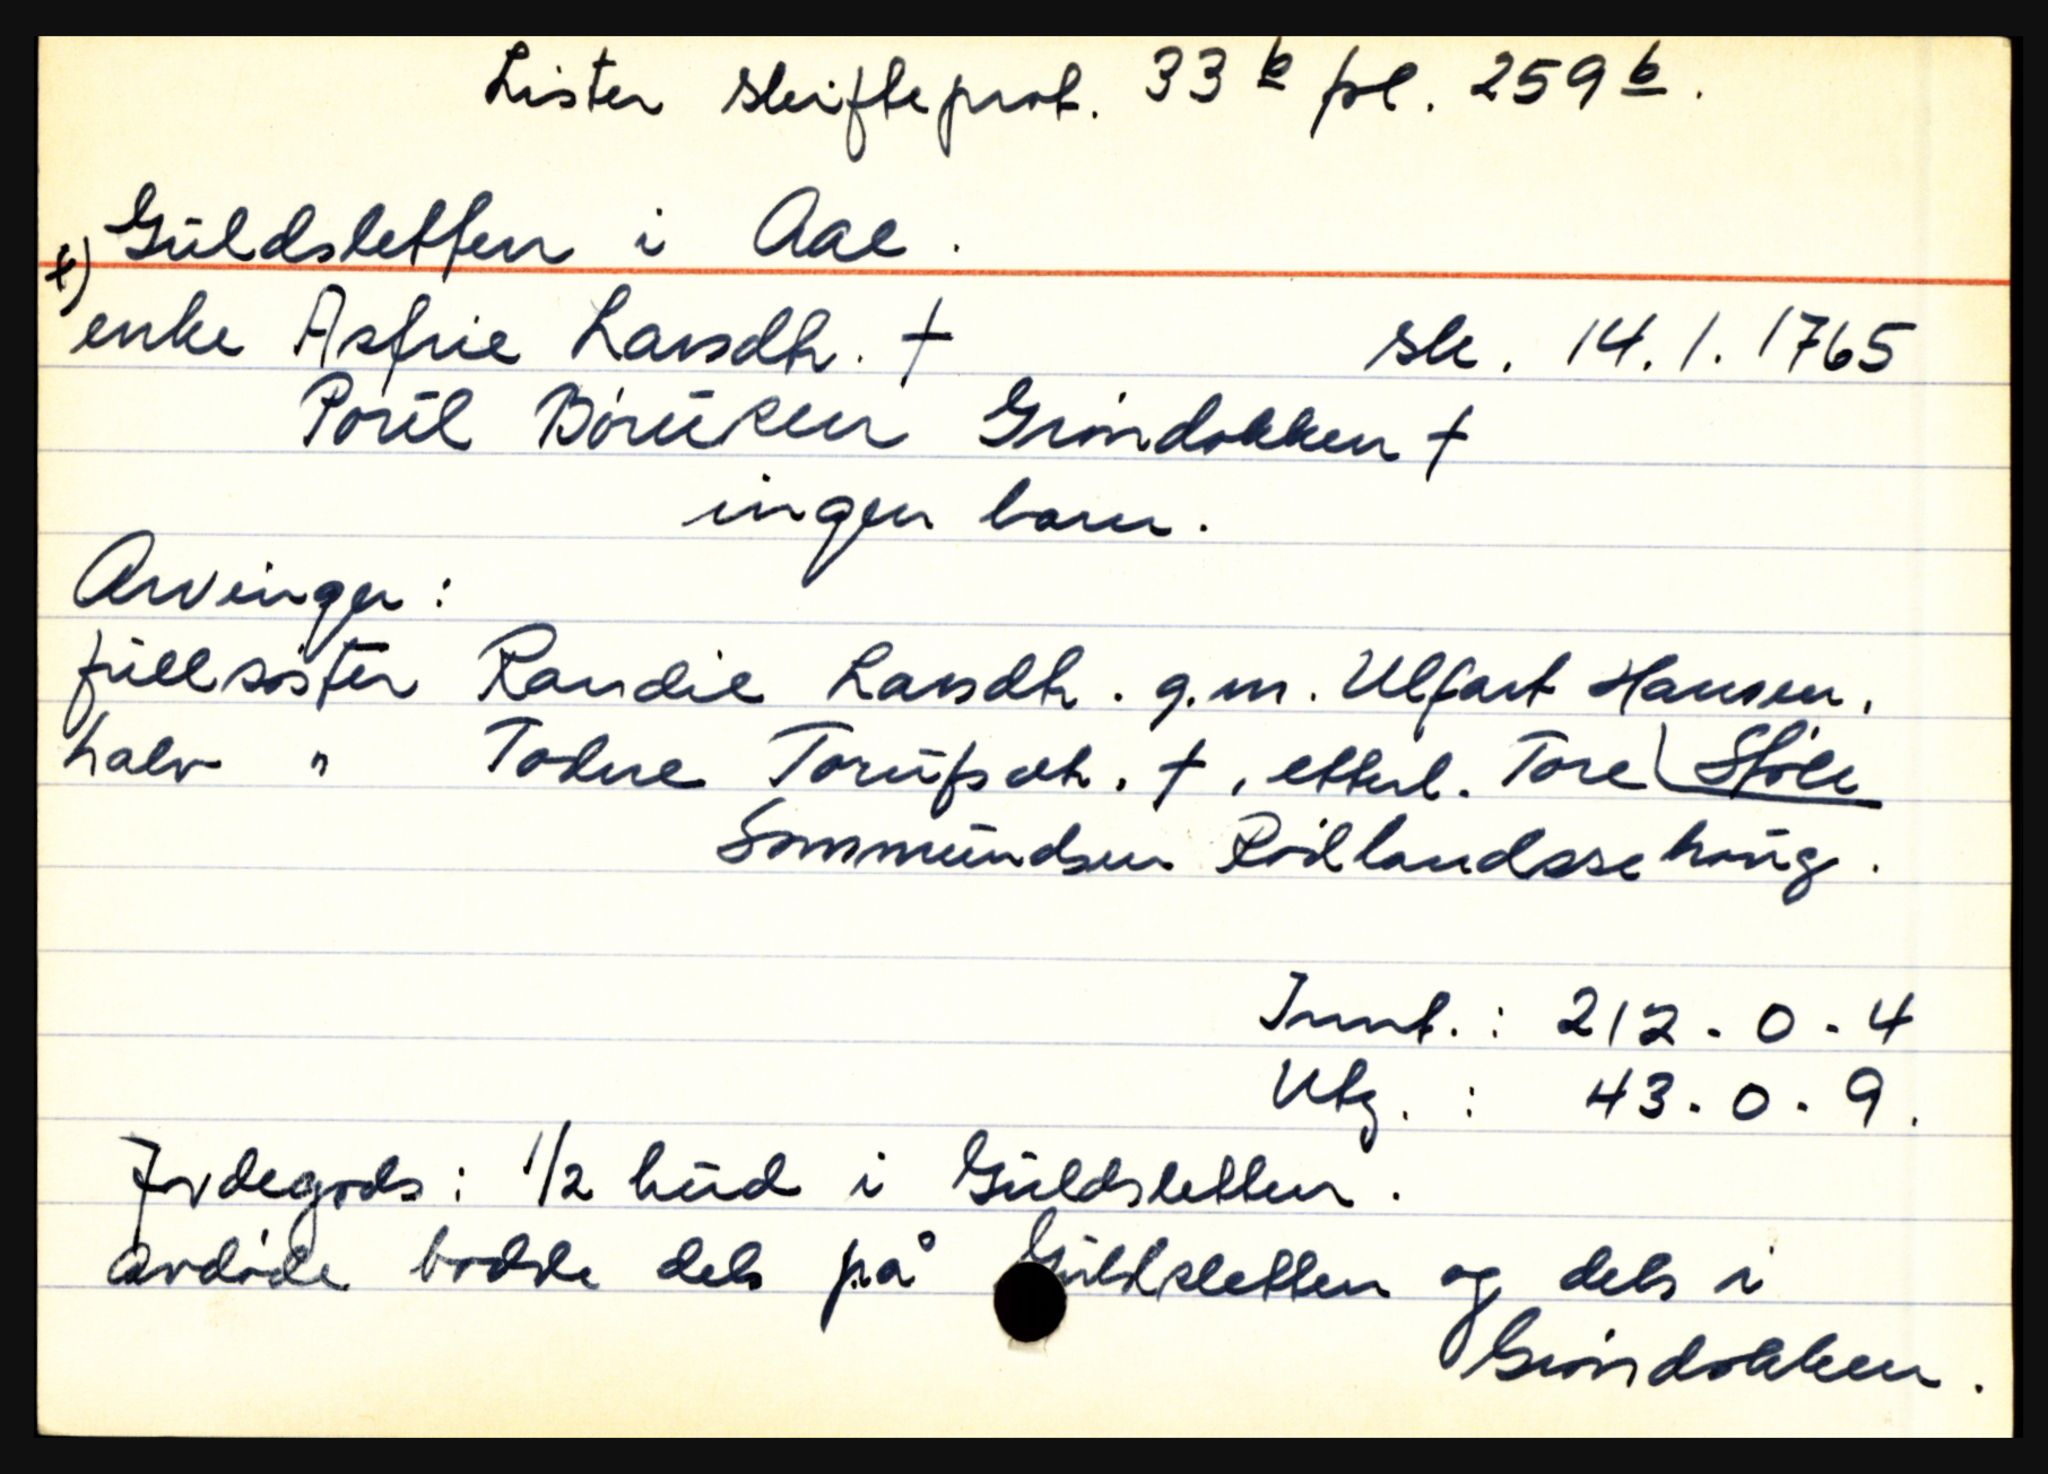 Lister skifteprot. 33 b fol. 259 b.
Guldsletten i Aae.
x) enke Asfrie Larsdtr. † sk. 14.1.1765
Poul Børuksen Grøndokken †
ingen barn.
Arvinger:
fullsøster Randie Larsdtr. g.m. Ulfart Hansen.
halv " Todne Torufsdtr. †, etterl. Tore Støle
Sommundsen Rødlandssehoug.
Innt.: 212-0-4
Utg.: 43-0-9.
Jordegods: 1/2 hud i Guldsletten.
avdøde bodde dels på Guldsletten og dels i
Grøndokken.